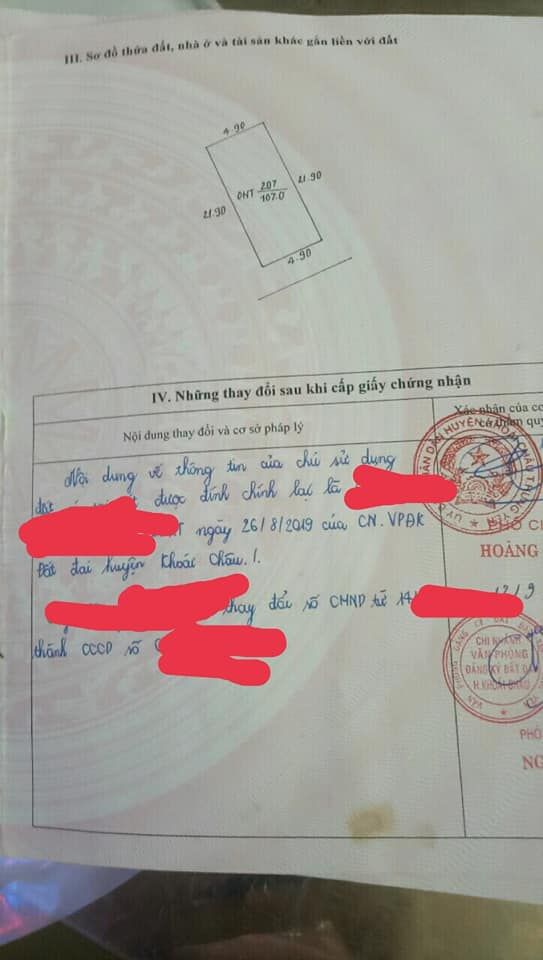 III. Sơ đồ thửa đất, nhà ở và tài sản khác gắn liền với đất
4.90
21.90
ONT 207/107.0
21.90
4.90
IV. Những thay đổi sau khi cấp giấy chứng nhận
Nội dung thay đổi và cơ sở pháp lý
Xác nhận của cơ
có thẩm quy
Nội dung về thông tin của chủ sử dụng
đất được đính chính lại là
ngày 26/8/2019 của CN. VPĐK
Đất đai huyện Khoái Châu./.
PHÓ CH
HOÀNG
thay đổi số CMND từ 14
thành CCCD số
CHI NHÁNH
VĂN PHÒNG
ĐĂNG KÝ ĐẤT ĐAI
H. KHOÁI CHÂU
PHÓ
NG